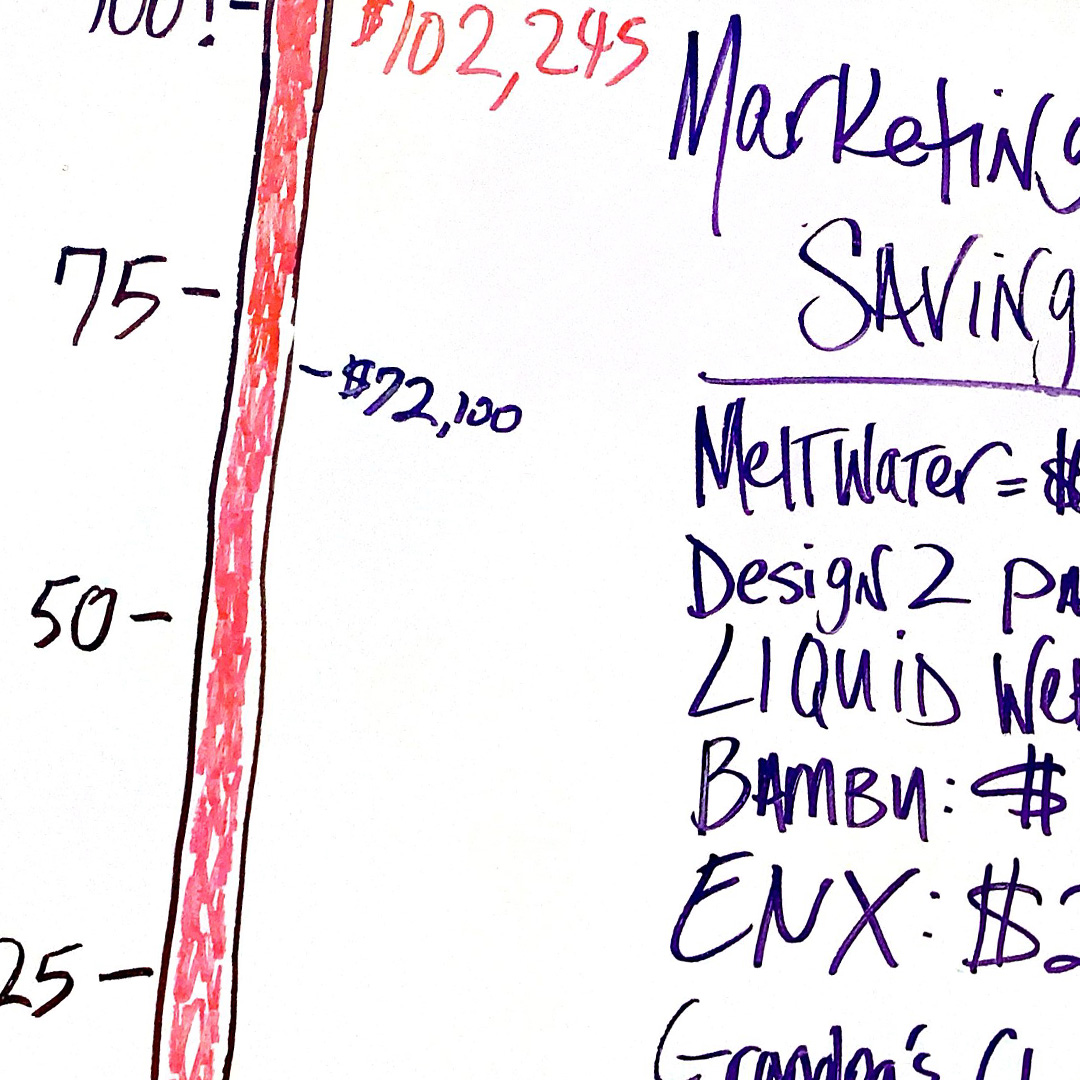 100!-
$102,245
75-
-$72,100
50-
25-
Marketing
Saving
Meltwater = $
Design 2 Pa
Liquid We
Bambu: $
ENX: $2
Grandpa's Cl